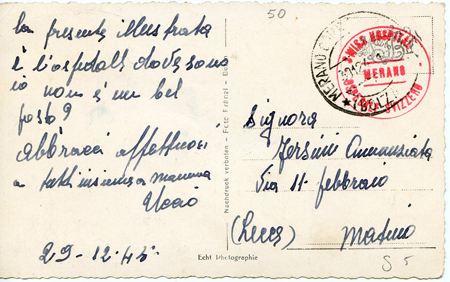 50
la presente illustrata
è l'ospedale dove sono
io non è un bel
posto?
abbracci affettuosi
a tutti insieme a mamma
29-12-45
Nachdruck verboten - Foto Fränzl - Bo
Echt Photographie
MERANO
SWISS HOSPITAL
MERANO
SVIZZERO
Signora
Annunziata
Via 11 febbraio
(Lecce) Matino
S 5